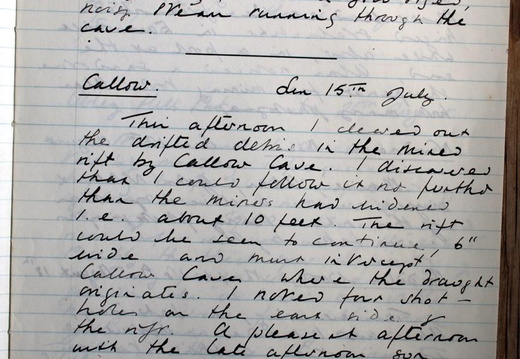 noisy stream running through the
cave.
Callow. Sun 15th July.
This afternoon I cleared out
the drifted debris in the mined
rift by Callow Cave. I discovered
that I could follow it no further
than the miners had widened
i.e. about 10 feet. The rift
could be seen to continue, 6"
wide and must intercept
Callow Cave, where the draught
originates. I noted four shot-
holes on the east side of
the rift. A pleasant afternoon
with the late afternoon sun